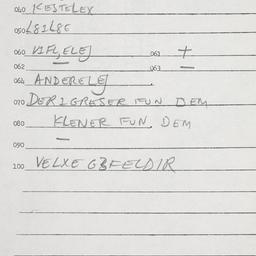 040 KESTELEX
050 L8iL8C
060 VIFLELEJ 061 +
062 063 —
064 ANDERELEJ
070 DER1GRESER FUN DEM
080 KLENER FUN DEM
090
100 VELXE G3FELDIR